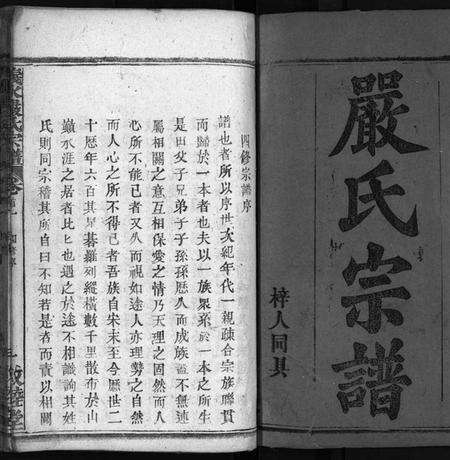 嚴氏宗譜
梓人同具
四修宗譜序
譜也者所以序世次紀年代一親疎合宗族聯貫
而歸於一本者也夫以一族眾系於一本之所生
是由父子兄弟子子孫孫歷久而成族豈不無連
屬相關之意互相保愛之情乃天理之固然而人
心所不能已者又久而視如途人亦理勢之自然
而人心之所不得已者吾族自宋末至今歷世二
十歷年六百其星碁羅列縱橫數千里散布於山
巔水涯之居者比比也遇之於途不相識詢其姓
氏則同宗稽其所自曰不知若是者而責以相關
嚴氏宗譜
卷
三